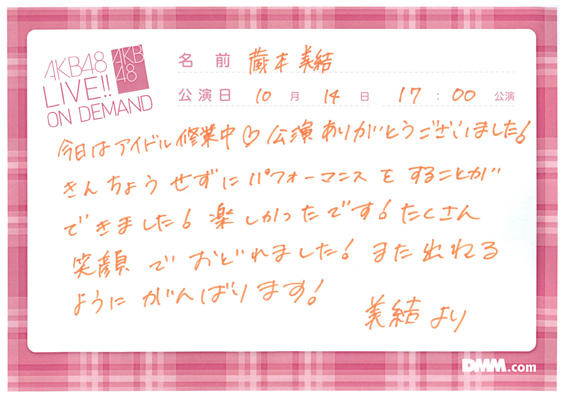 AKB48
LIVE!!
ON DEMAND
AKB
48
名前 蔵本美結
公演日 10月14日 17:00公演
今日はアイドル修業中♡公演ありがとうございました!
きんちょうせずにパフォーマンスをすることが
できました!楽しかったです!たくさん
笑顔でおどれました!また出れる
ようにがんばります!
美結より
DMM.com